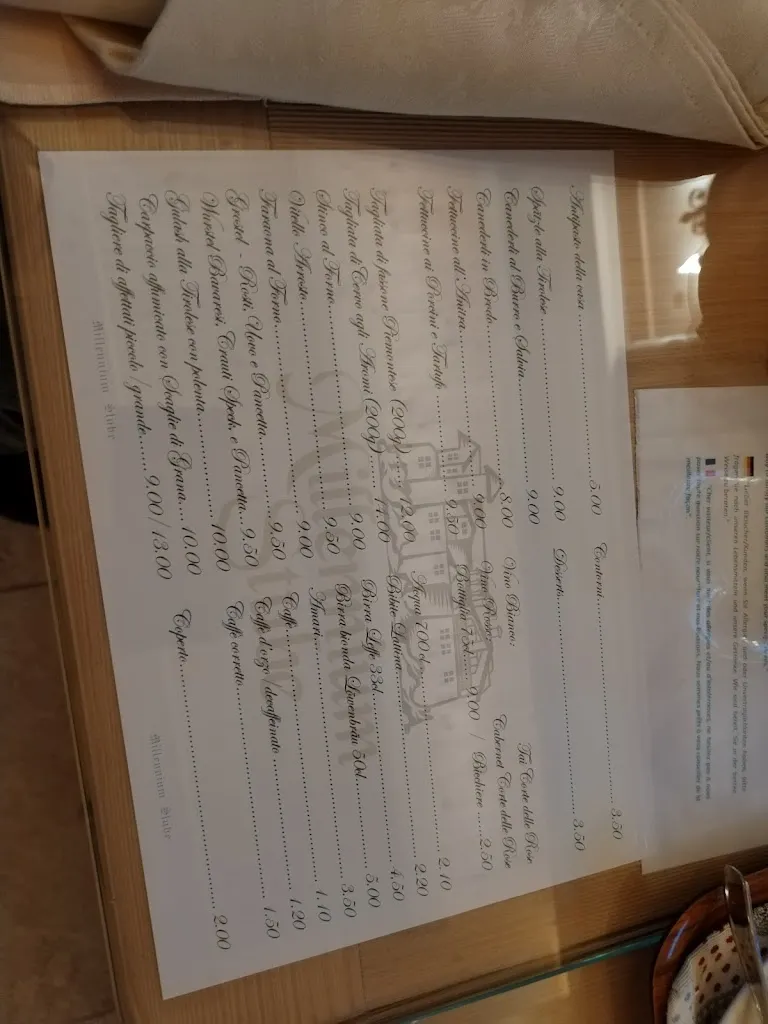 Antipasto della casa 5.00
Spätzle alla Tirolese 9.00
Canederli al Burro e Salvia 9.00
Canederli in Brodo 8.00
Fettuccine all'Anitra 9.00
Fettuccine ai Porcini e Tartufo 9.50
Tagliata di fassone Piemontese (200g) 12.00
Tagliata di Cervo agli Aromi (200g) 14.00
Stinco al Forno 9.00
Vitello Arrosto 9.50
Faraona al Forno 9.00
Grostel - Rosti, Uovo e Pancetta 9.50
Wurstel Bavaresi, Crauti Speck, e Pancetta 9.50
Gulash alla Tirolese con polenta 10.00
Carpaccio affumicato con Scaglie di Grana 10.00
Tagliere di affettati piccolo / grande 9,00 / 13.00
Millennium Stube
Contorni 3.50
Dessert 3.50
Vino Bianco: Tai Corte delle Rose
Vino Rosso: Cabernet Corte delle Rose
Bottiglia 75cl 9,00 / Bicchiere 2.50
Acqua 700cl 2.10
Bibite Lattina 2.20
Birra Leffe 33cl 4,50
Birra bionda Löwenbräu 50cl 5.00
Amari 3.50
Caffè 1.10
Caffè d'orzo / decaffeinato 1.20
Caffè corretto 1.50
Coperto 2.00
Millennium Stube
Millennium